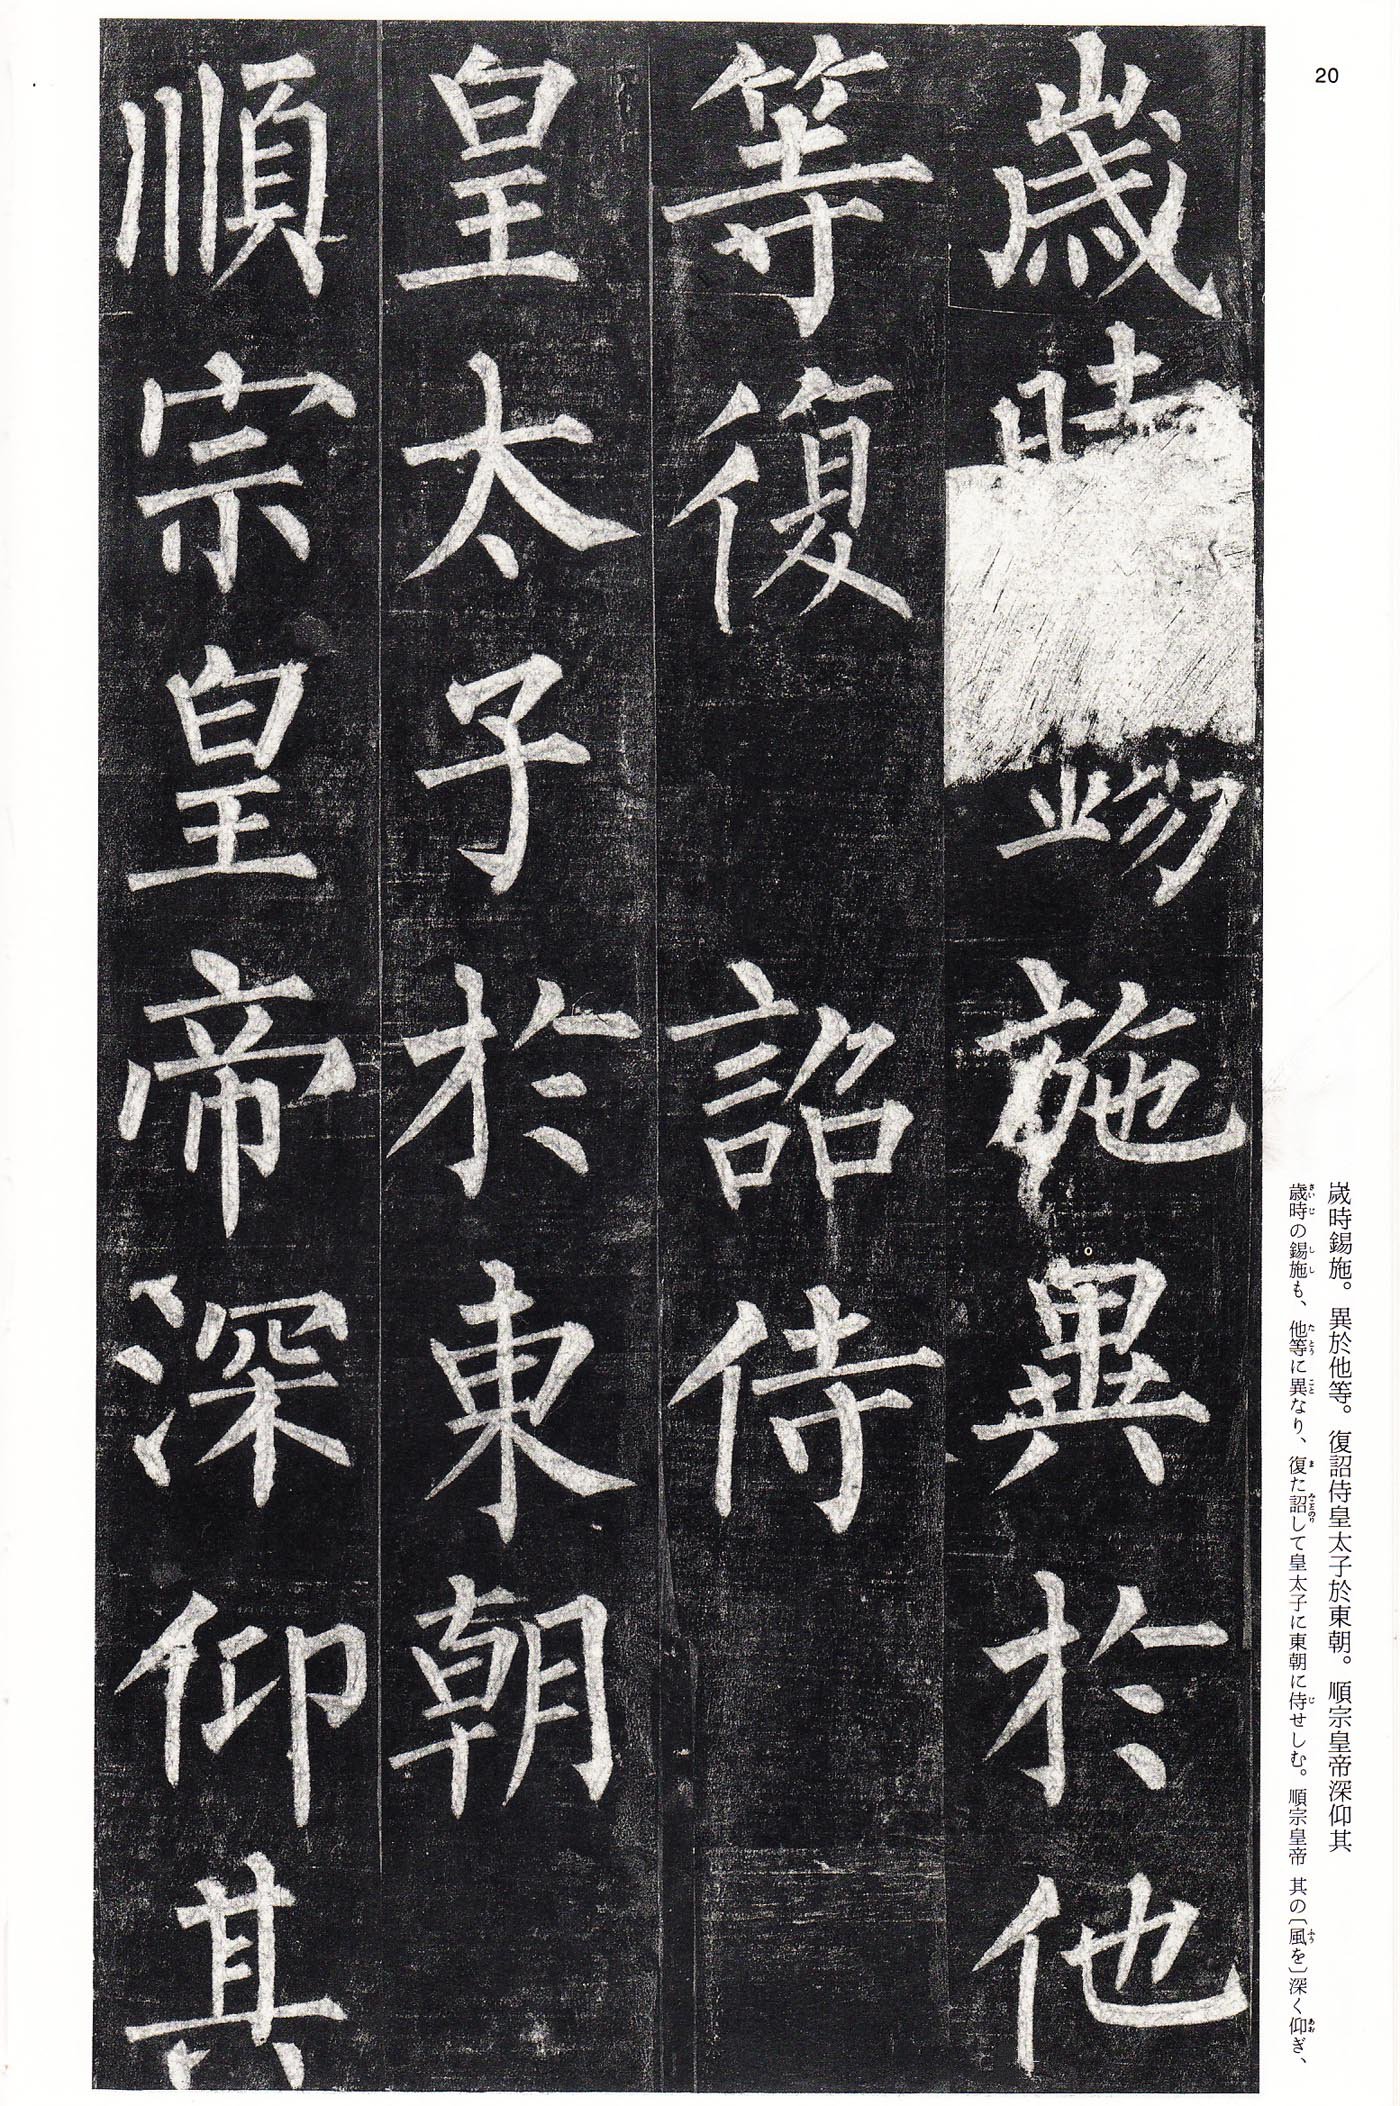 20
歲時錫施。異於他等。復詔侍皇太子於東朝。順宗皇帝深仰其
歳時の錫施も、他等に異なり、復た詔して皇太子に東朝に侍せしむ。順宗皇帝 其の〔風を〕深く仰ぎ、
歲時錫施異於他
等復 詔侍
皇太子於東朝
順宗皇帝深仰其